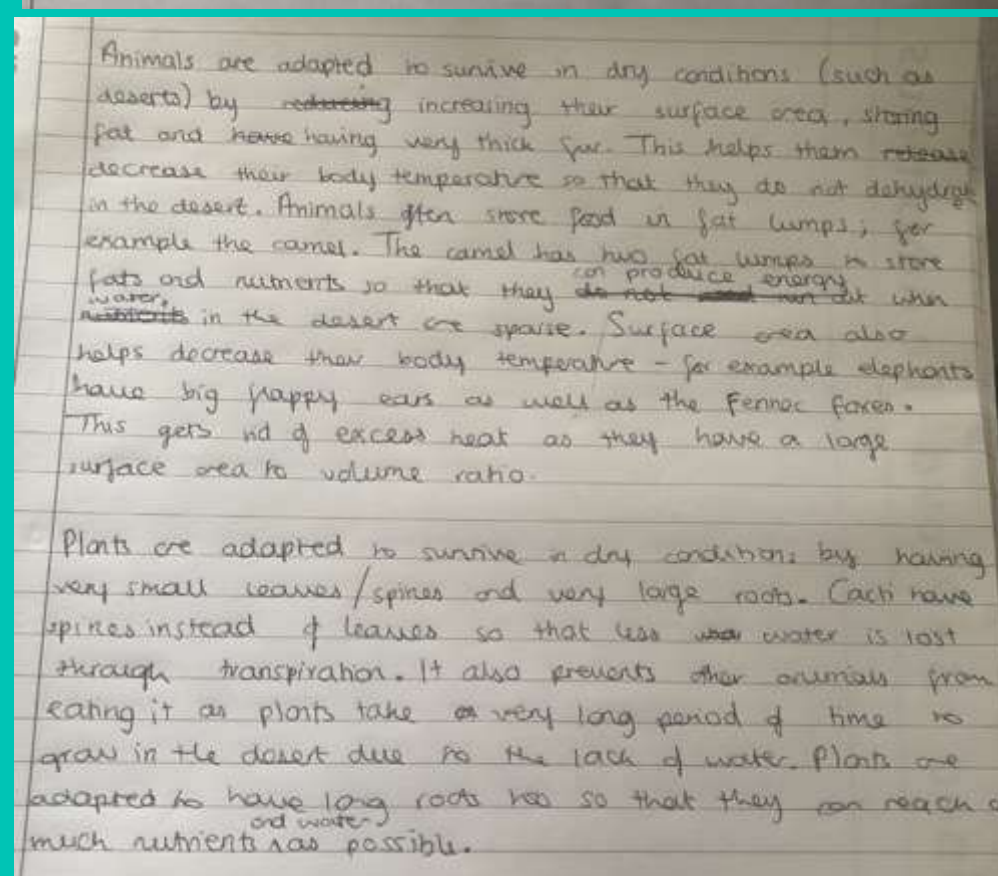 Animals are adapted to survive in dry conditions (such as
deserts) by reducing increasing their surface area, storing
fat and have having very thick fur. This helps them release
decrease their body temperature so that they do not dehydrate
in the desert. Animals often store food in fat lumps, for
example the camel. The camel has two fat lumps to store
fats and nutrients so that they can produce energy do not run out when
water, nutrients in the desert are sparse. Surface area also
helps decrease their body temperature - for example elephants
have big flappy ears as well as the Fennec foxes.
This gets rid of excess heat as they have a large
surface area to volume ratio.
Plants are adapted to survive in dry conditions by having
very small leaves/spines and very large roots. Cacti have
spines instead of leaves so that less water is lost
through transpiration. It also prevents other animals from
eating it as plants take a very long period of time to
grow in the desert due to the lack of water. Plants are
adapted to have long roots too so that they can reach as
much nutrients and water as possible.